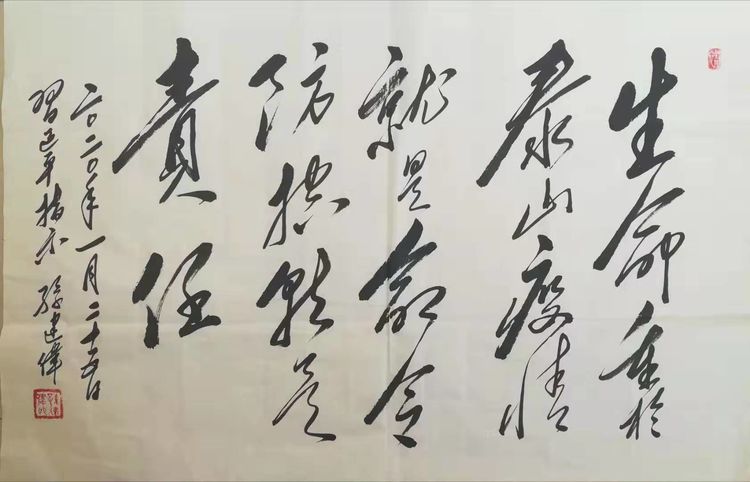 生命重於
泰山疫情
就是命令
防控就是
責任
二〇二〇年一月二十五日
習近平指示 孫建偉